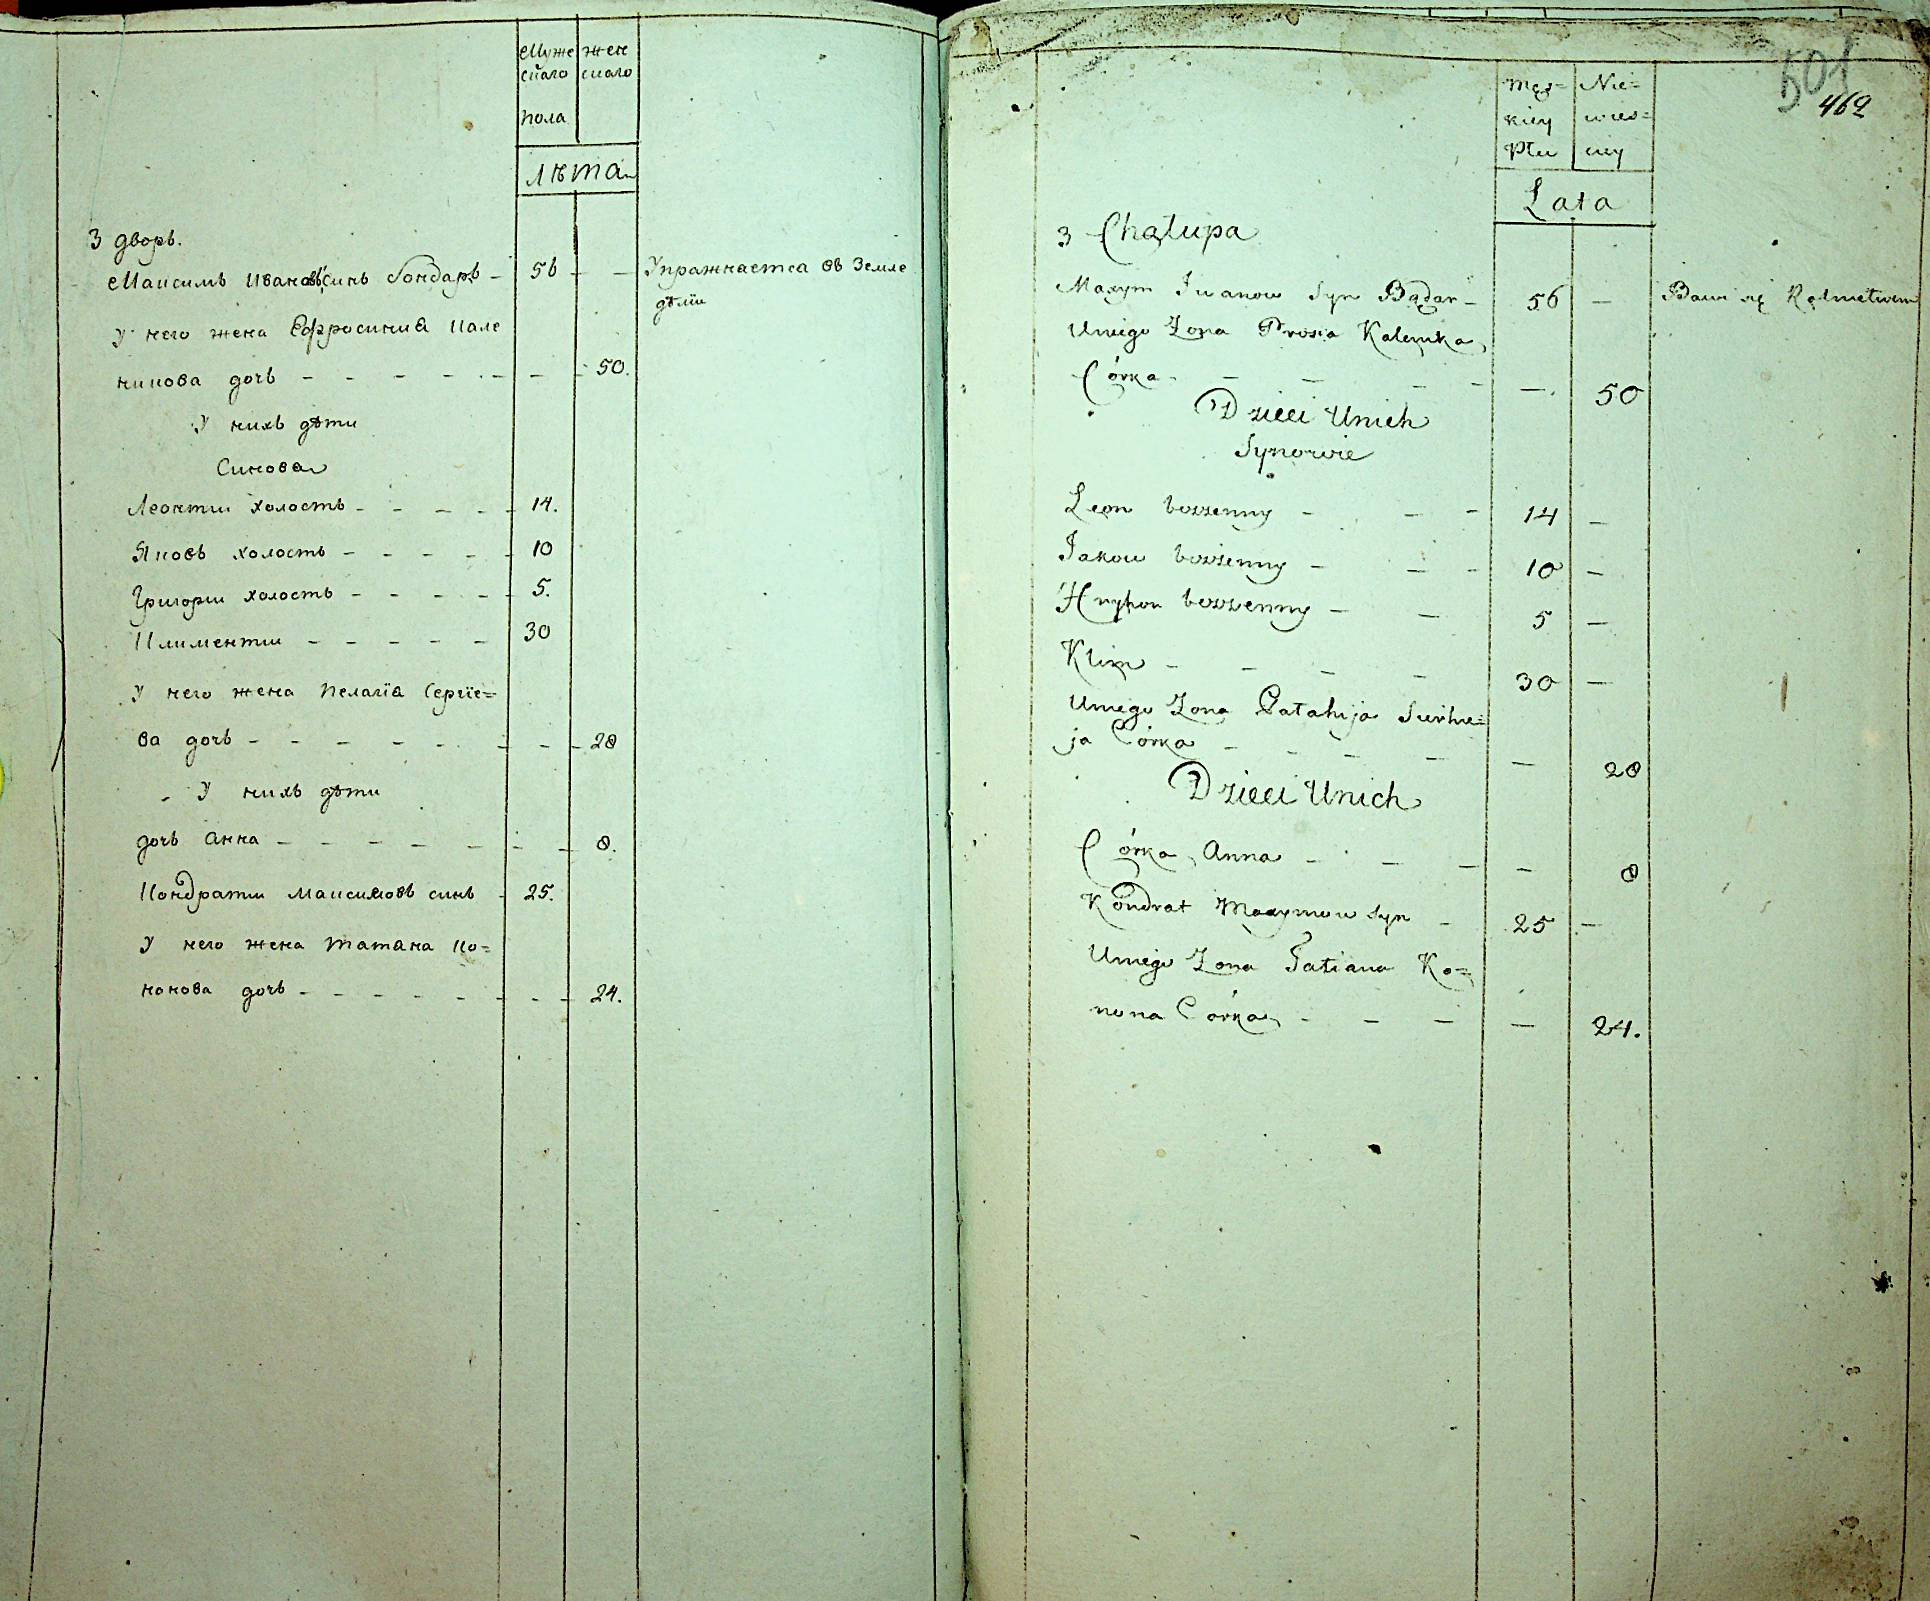 Муже жен
скаго скаго
пола
лѣта
3 дворъ.
Максимъ Ивановъ синъ Бондаръ - 56 - - Упражнаетса въ Земле
дѣлїи
У него жена Ефросиниа Кале
никова дочь - - - - - - - 50.
У нихъ дѣти
Синова
Леонтии холостъ - - - - - 14.
Яковъ холостъ - - - - - 10
Григории холостъ - - - - - 5.
Климентии - - - - - 30
У него жена Пелагїа Сергїе=
ва дочь - - - - - - - - 28
У нихъ дѣти
дочь Анна - - - - - - - 8.
Кондратии Максимовъ синъ - 25.
У него жена Татана Ко=
нонова дочь - - - - - - - - 24.
501
462
Męz= Nie=
kiey wies=
Płci ciey
Lata
3 Chałupa
Maxym Iwanow Syn Bądar - 56 - Bawi się Rolnictwem
Uniego Żona Prosia Kalenika
Córka - - - - - 50
Dzieci Unich
Synowie
Leon bezżenny - - - 14 -
Jakow bezżenny - - - 10 -
Hryhor bezżenny - - 5 -
Klim - - - - 30 -
Uniego Żona Pałahija Serhie=
ja Córka - - - - - - 28
Dzieci Unich
Córka Anna - - - - 8
Kondrat Maxymow Syn - 25 -
Uniego Żona Tatiana Ko=
nona Córka - - - - 24.